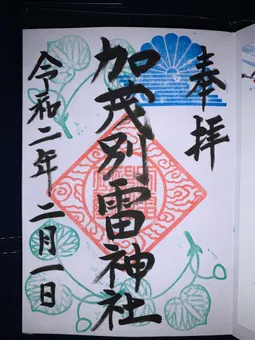 奉拝
加茂別雷神社
令和二年 二月一日